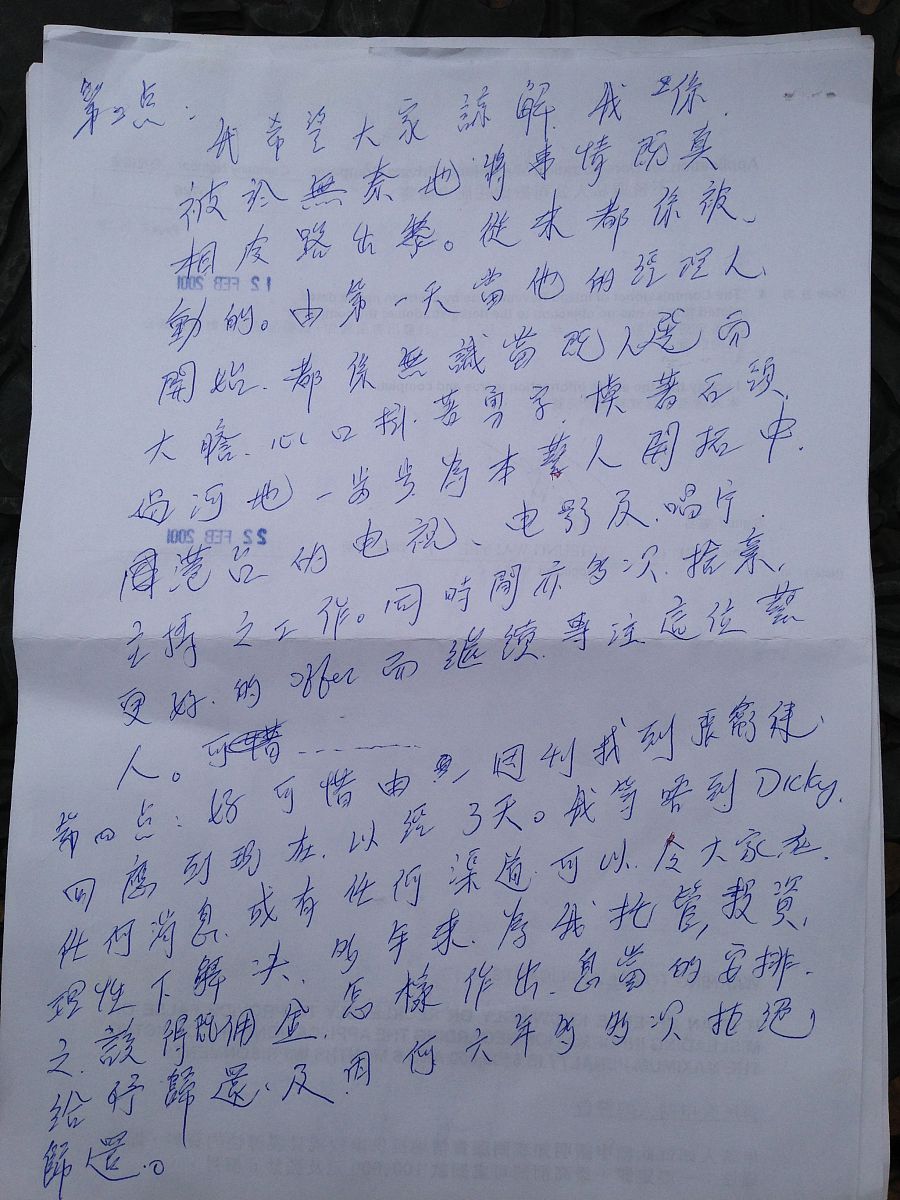 第3点:
我希望大家諒解,我亦係
被於無奈地將事情既真
相皮路出黎。從来都係被
動的。由第一天當他的經理人
開始.都係無識當既人選而
大膽.心口掛著勇字.摸著石頭
過河地一步步為本藝人開拓中
国港台的电視、电影及唱片
主持之工作。同時間亦多次捨棄
更好的offer而继續專注這位藝
人。可惜
第四点:好可惜由 一周刊找到張
回應到現在.以經3天。我等唔到Dicky
任何消息.或有任何渠道.可以令大家在
理性下解决.多年来.為我托管,投資
之該得既佣金.怎樣作出息當的安排.
給予歸還.及因何六年多多次拒绝
歸還。
12 FEB 2001
22 FEB 2001